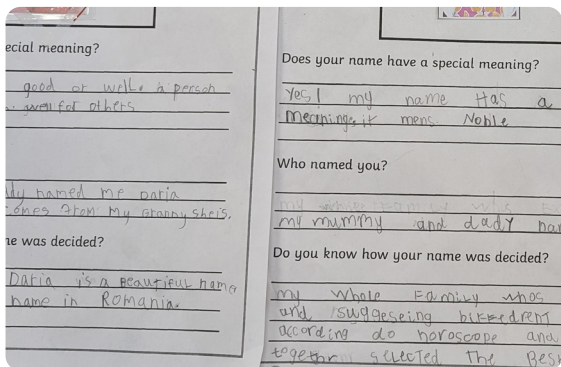 ecial meaning?
good or well. a person
well for others
dy named me Daria
comes from my Granny she is.
ne was decided?
Daria is a Beautiful name
name in Romania.
Does your name have a special meaning?
Yes! my name Has a
meaning. it mens Noble
Who named you?
my mummy and dady
Do you know how your name was decided?
my whole Family whos
and suggeseing
according do horoscope and
together sclected The Bes